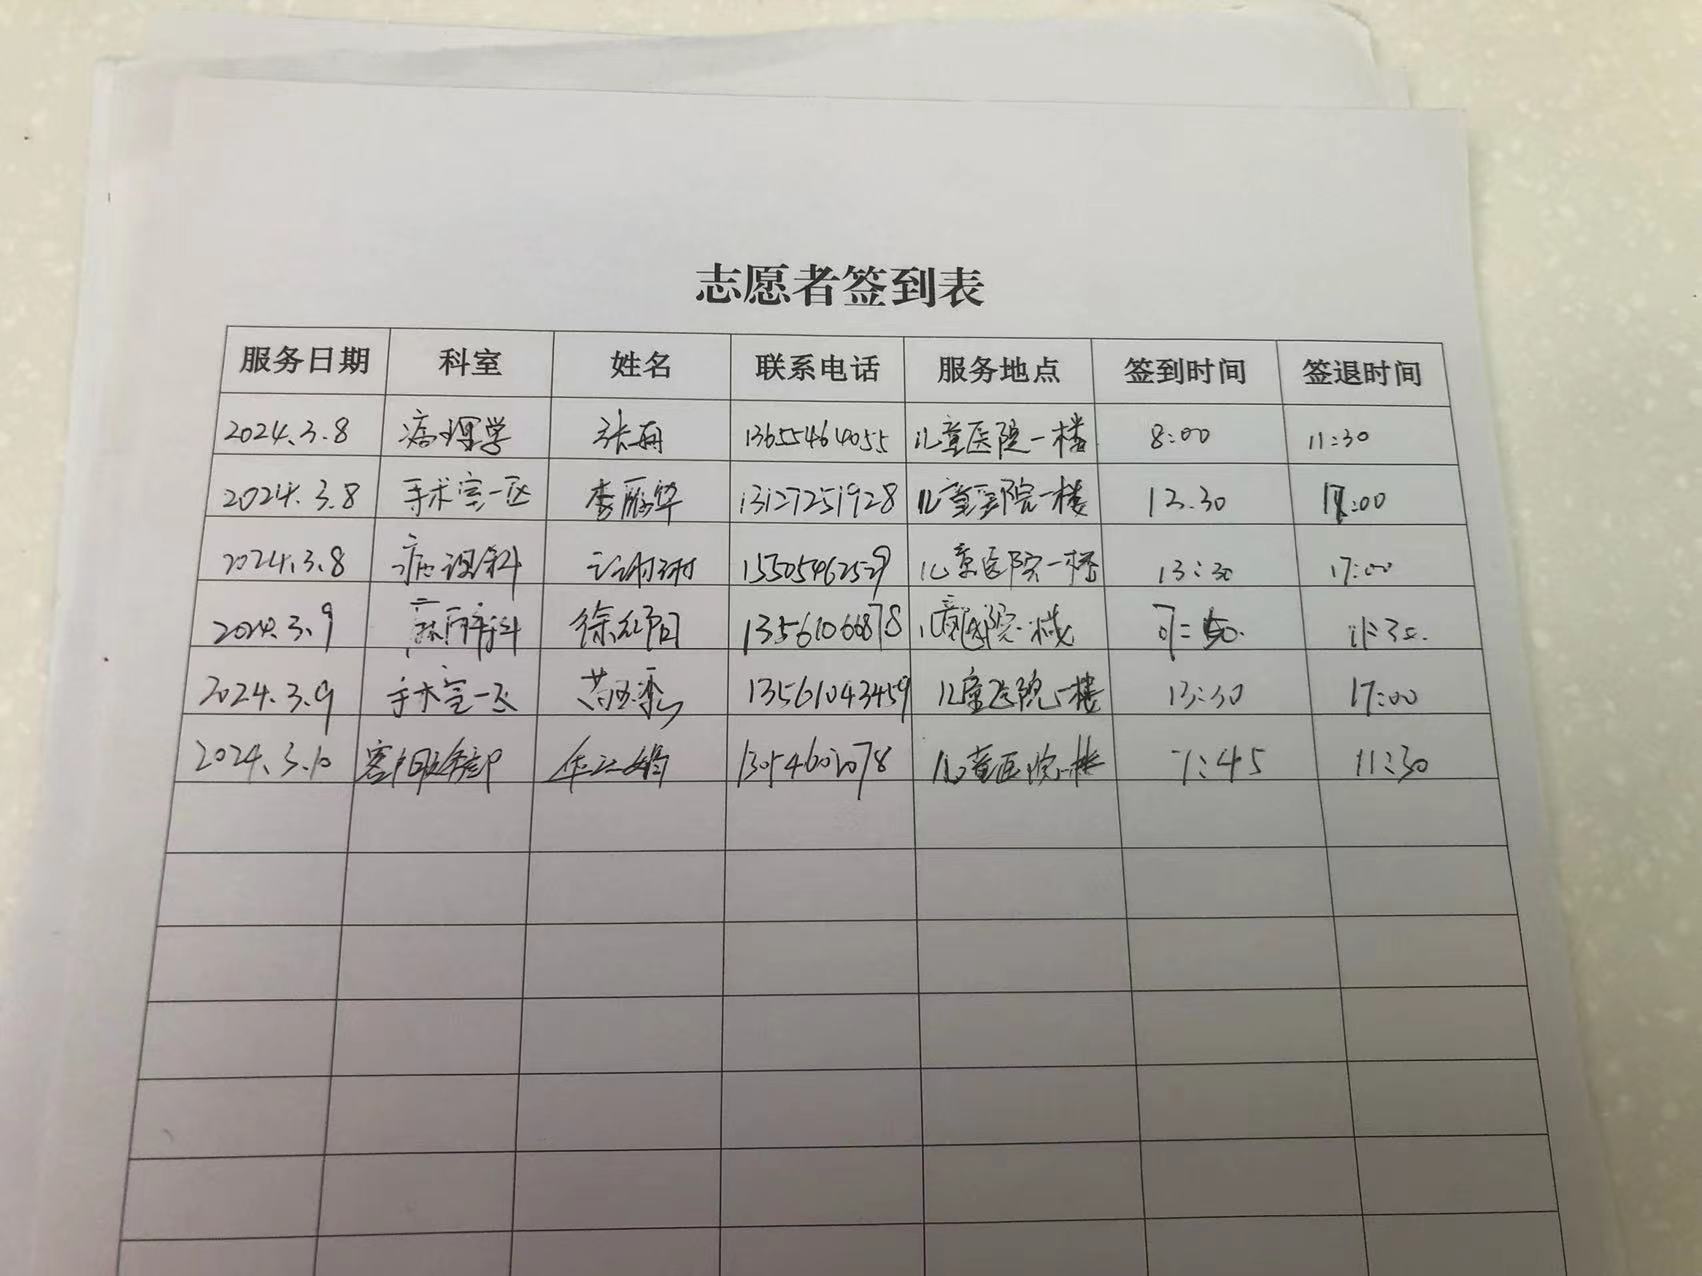 志愿者签到表
服务日期 科室 姓名 联系电话 服务地点 签到时间 签退时间
2024.3.8 病理学 张甬 13655464055 儿童医院一楼 8:00 11:30
2024.3.8 手术室一区 李丽华 13127251928 儿童医院一楼 12.30 17:00
2024.3.8 病理科 15505462529 儿童医院一楼 13:30 17:00
2024.3.9 麻醉科 徐红阳 13561066878 儿童医院一楼 7:50. 11:30.
2024.3.9 手术室一区 13561043459 儿童医院一楼 13:30 17:00
2024.3.10 儿童医院一楼 7:45 11:30